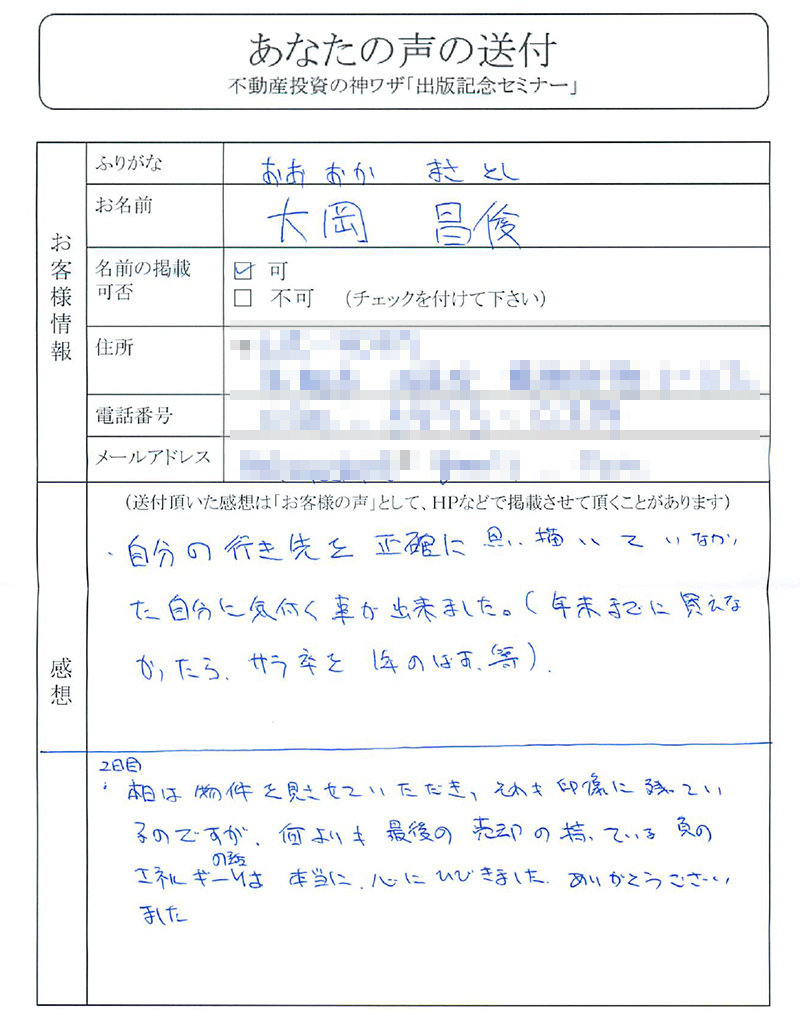 あなたの声の送付
不動産投資の神ワザ「出版記念セミナー」
お客様情報
ふりがな
おおおか まさとし
お名前
大岡 昌俊
名前の掲載
可否
可
不可 (チェックを付けて下さい)
住所
電話番号
メールアドレス
感想
(送付頂いた感想は「お客様の声」として、HPなどで掲載させて頂くことがあります)
・自分の行き先を正確に思い描いていなかっ
た自分に気付く事が出来ました。(年末までに買えな
かったら、サラ卒を1年のばす、等)。
2日目
・本日は物件を見させていただき、それも印像に残ってい
るのですが、何よりも最後の売却の持っている負の
エネルギーの話は本当に、心にひびきました。ありがとうござい
ました